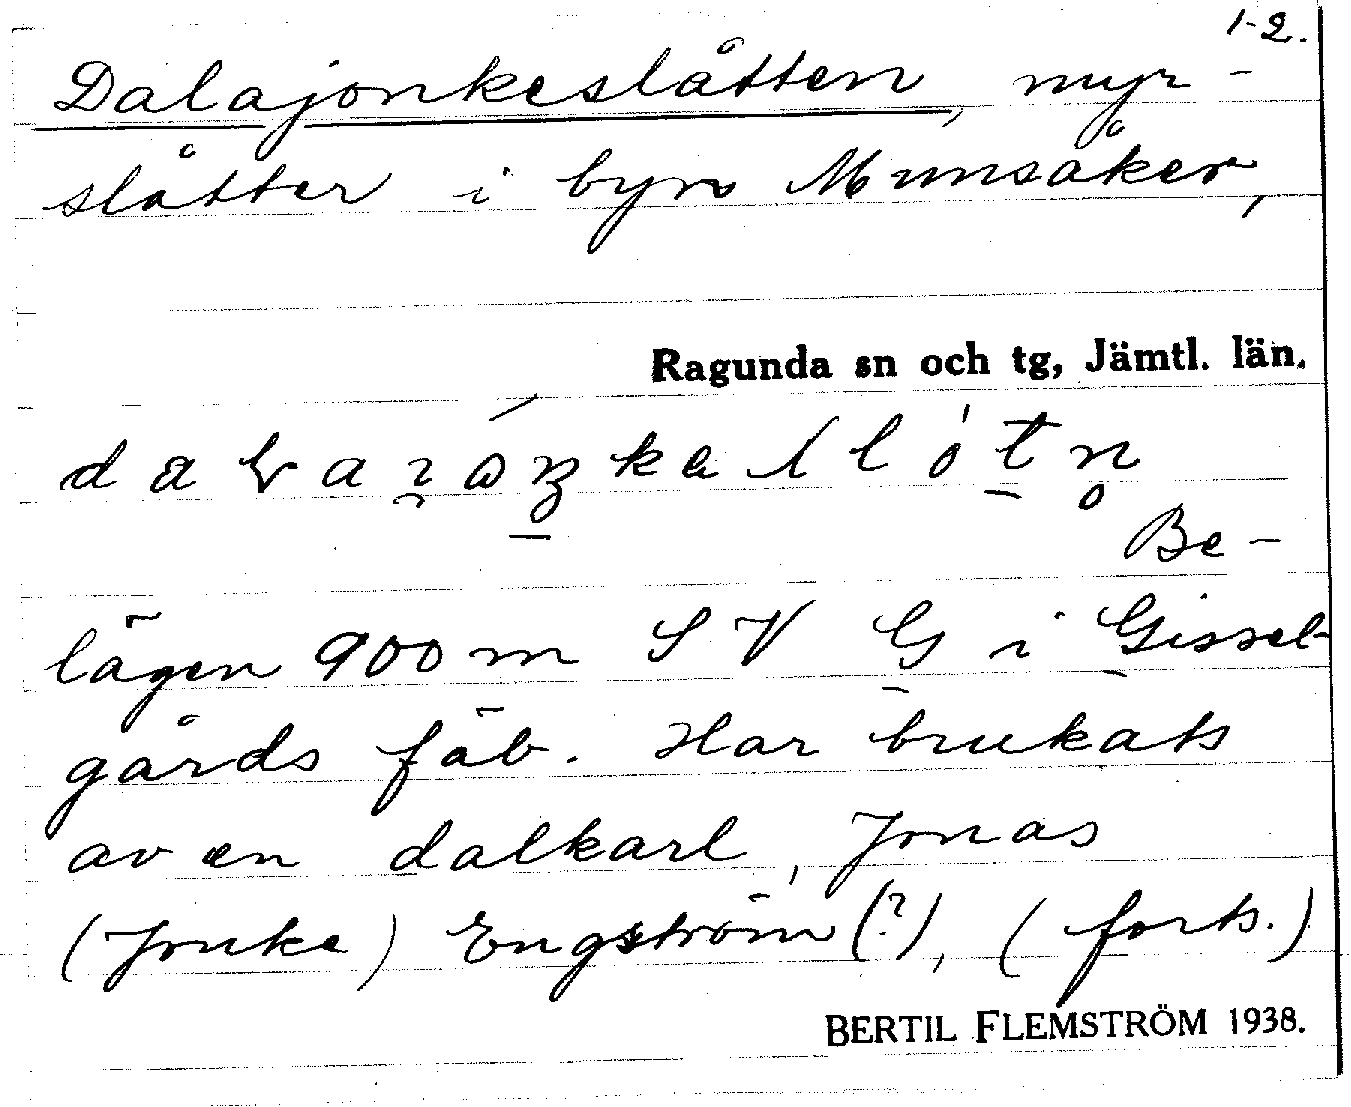 1-2.
Dalajonkeslåtten, myr-
slåtter i byn Munsåker,
Ragunda sn och tg, Jämtl. län.
Be-
lägen 900 m SV G i Gissel-
gårds fäb. Har brukats
av en dalkarl, Jonas
(Jonke) Engström (?), (forts.)
BERTIL FLEMSTRÖM 1938.